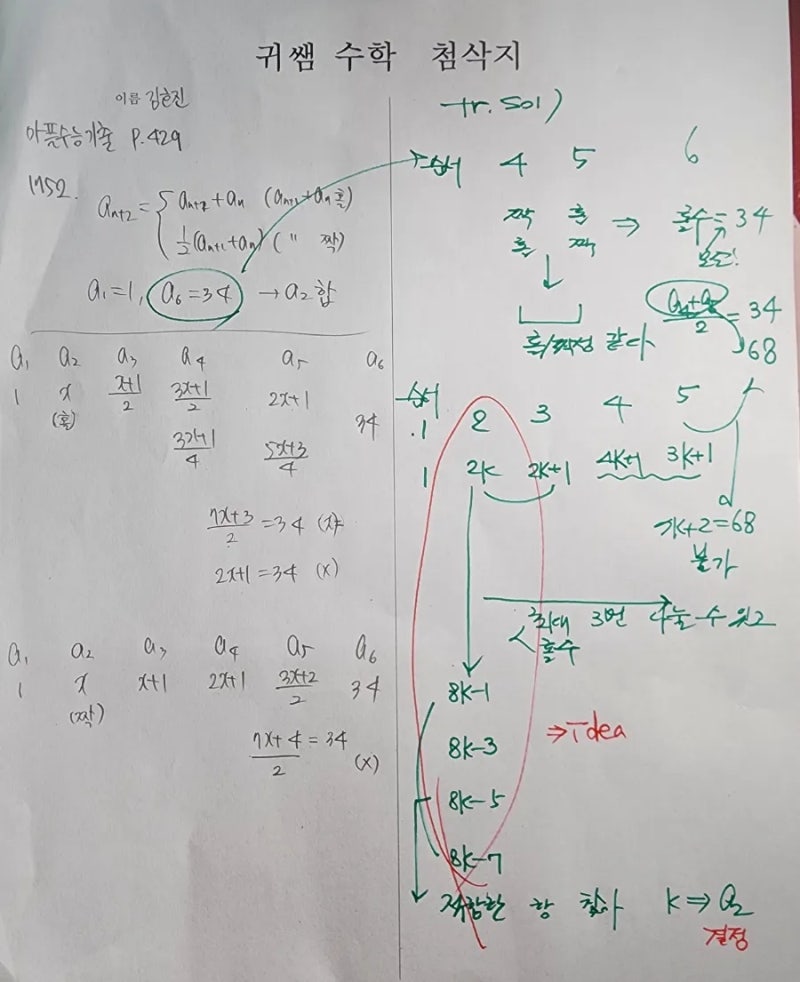 귀쌤 수학 첨삭지
이름 김효진
마플수능기출 P.429
1752.
a_{n+2} = { a_{n+1}+a_n (a_{n+1}+a_n 홀)
½(a_{n+1}+a_n) ( " 짝)
a₁=1, a₆=34 → a₂ 합
a₁ a₂ a₃ a₄ a₅ a₆
1 x (x+1)/2 (3x+1)/2 2x+1 34
(홀)
(3x+1)/4 (5x+3)/4
(7x+3)/2 =34 (x)
2x+1 =34 (x)
a₁ a₂ a₃ a₄ a₅ a₆
1 x x+1 2x+1 (3x+2)/2 34
(짝)
(7x+4)/2 = 34 (x)
tr. Sol)
4 5 6
짝 홀 ⇒ 홀수=34
홀 짝 모순!
홀/짝성 같다
(a₄+a₅)/2 = 34
68
1 2 3 4 5
1 2k 2k+1 4k+1 3k+1
7k+2=68
불가
최대 3번 나눌 수 있고
< 홀수
8k-1
8k-3 ⇒ Idea
8k-5
8k-7
적당한 항 찾아 k ⇒ a₂
결정